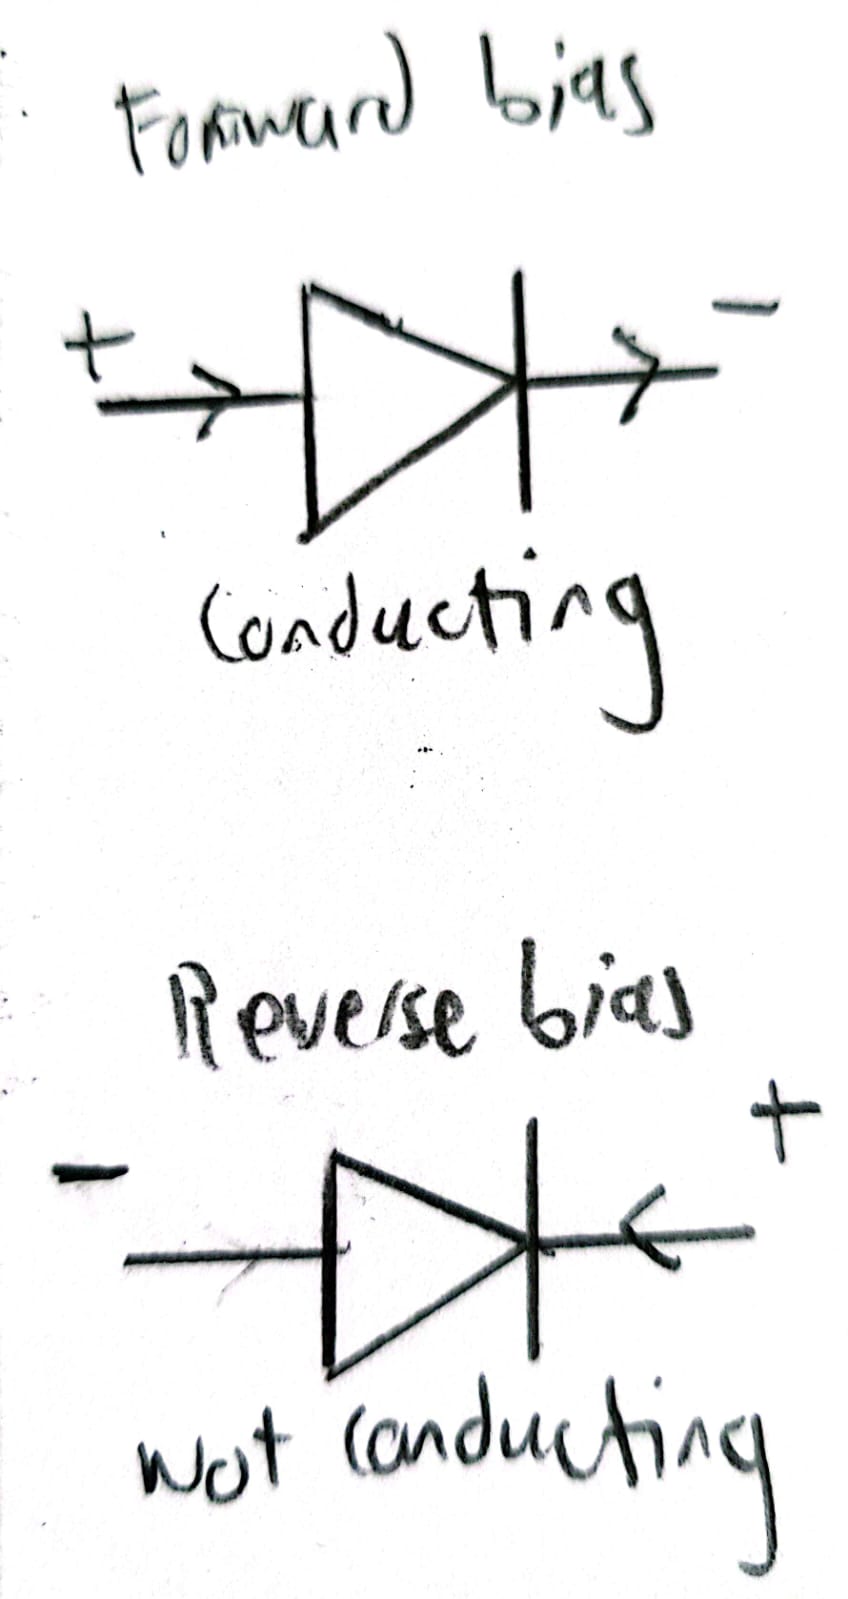 Forward bias
+ -
Conducting
Reverse bias
- +
Not conducting